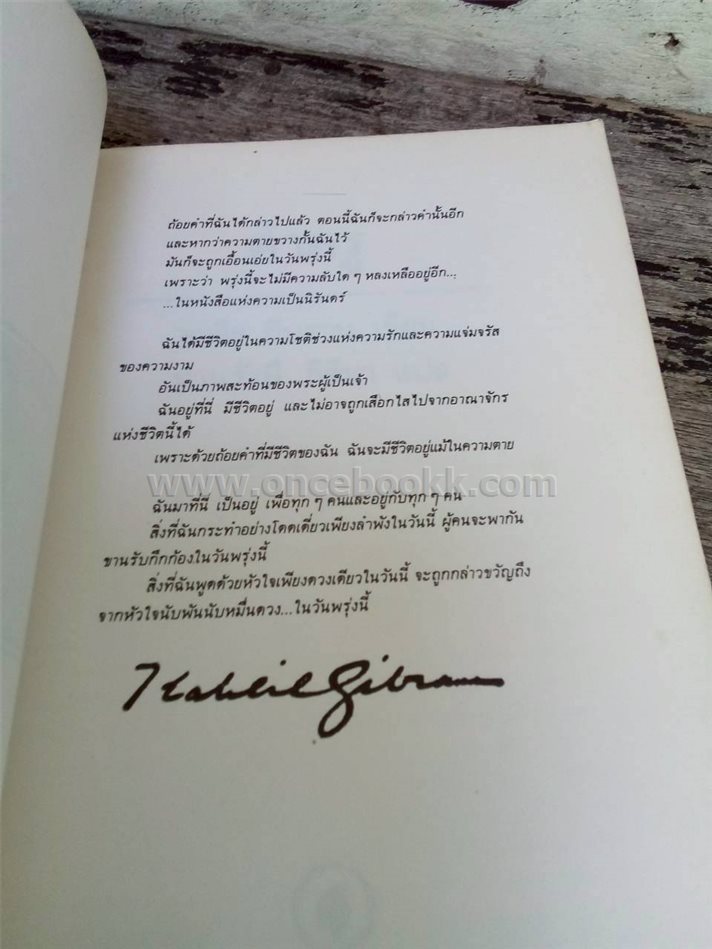 ถ้อยคำที่ฉันได้กล่าวไปแล้ว ตอนนี้ฉันก็จะกล่าวคำนั้นอีก
และหากว่าความตายขวางกั้นฉันไว้
มันก็จะถูกเอื้อนเอ่ยในวันพรุ่งนี้
เพราะว่า พรุ่งนี้จะไม่มีความลับใด ๆ หลงเหลืออยู่อีก...
...ในหนังสือแห่งความเป็นนิรันดร์
ฉันได้มีชีวิตอยู่ในความโชติช่วงแห่งความรักและความแจ่มจรัส
ของความงาม
อันเป็นภาพสะท้อนของพระผู้เป็นเจ้า
ฉันอยู่ที่นี่ มีชีวิตอยู่ และไม่อาจถูกเสือกไสไปจากอาณาจักร
แห่งชีวิตนี้ได้
เพราะด้วยถ้อยคำที่มีชีวิตของฉัน ฉันจะมีชีวิตอยู่แม้ในความตาย
www.oncebookk.com
ฉันมาที่นี่ เป็นอยู่ เพื่อทุก ๆ คนและอยู่กับทุก ๆ คน
สิ่งที่ฉันกระทำอย่างโดดเดี่ยวเพียงลำพังในวันนี้ ผู้คนจะพากัน
ขานรับกึกก้องในวันพรุ่งนี้
สิ่งที่ฉันพูดด้วยหัวใจเพียงดวงเดียวในวันนี้ จะถูกกล่าวขวัญถึง
จากหัวใจนับพันนับหมื่นดวง...ในวันพรุ่งนี้
Kahlil Gibran